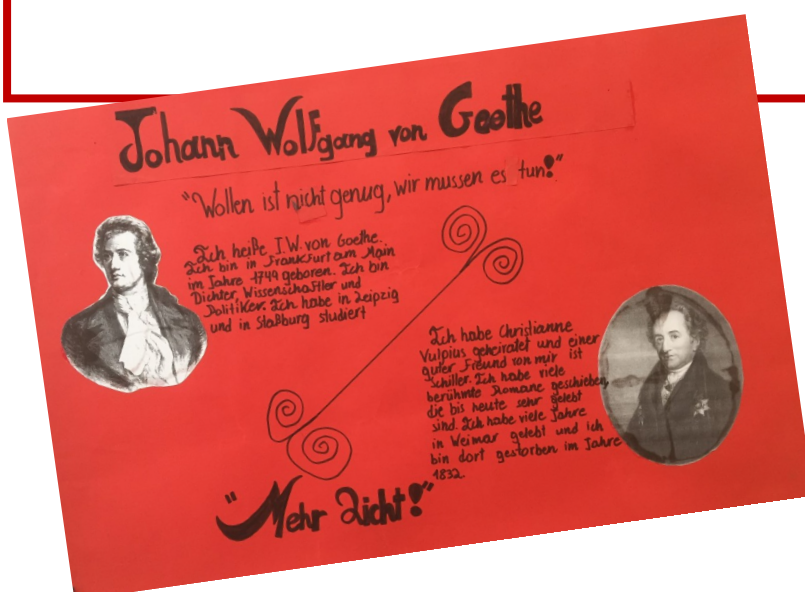 Johann Wolfgang von Goethe
"Wollen ist nicht genug, wir mussen es tun!"
Ich heiße J.W. von Goethe.
Ich bin in Frankfurt am Main
im Jahre 1749 geboren. Ich bin
Dichter, Wissenschaftler und
Politiker. Ich habe in Leipzig
und in Staßburg studiert
Ich habe Christianne
Vulpius geheiratet und einer
guter Freund von mir ist
Schiller. Ich habe viele
berühmte Romane geschieben,
die bis heute sehr gelebt
sind. Ich habe viele Jahre
in Weimar gelebt und ich
bin dort gestorben im Jahre
1832.
"Mehr Licht!"